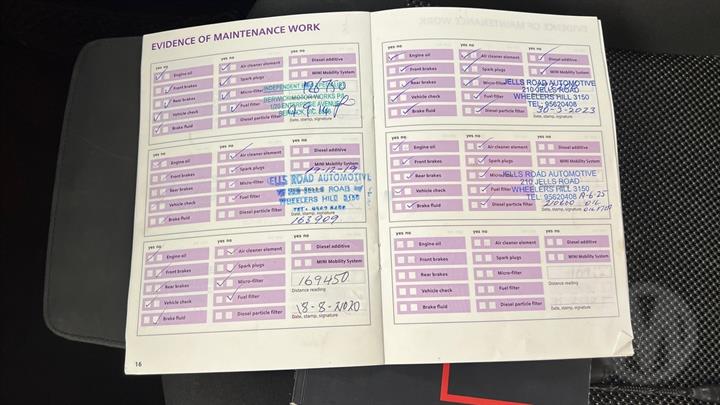 EVIDENCE OF MAINTENANCE WORK
yes no
Engine oil
Front brakes
Rear brakes
Vehicle check
Brake fluid
yes no
Air cleaner element
Spark plugs
Micro-filter
Fuel filter
yes no
Diesel additive
MINI Mobility System
INDEPENDENT
BERWICK MOTOR WORKS P/L
1/20 ENTERPRISE AVENUE
BERWICK
Date, stamp, signature
yes no
Engine oil
Front brakes
Rear brakes
Vehicle check
Brake fluid
yes no
Air cleaner element
Spark plugs
Micro-filter
Fuel filter
Diesel particle filter
yes no
Diesel additive
MINI Mobility System
19-12-19
JELLS ROAD AUTOMOTIVE
210 JELLS ROAD
WHEELERS HILL 3150
Date, stamp, signature
163909
yes no
Engine oil
Front brakes
Rear brakes
Vehicle check
Brake fluid
yes no
Air cleaner element
Spark plugs
Micro-filter
Fuel filter
Diesel particle filter
yes no
Diesel additive
MINI Mobility System
169450
Distance reading
18-8-2020
Date, stamp, signature
16
yes no
Engine oil
Front brakes
Rear brakes
Vehicle check
Brake fluid
yes no
Air cleaner element
Spark plugs
Micro-filter
Fuel filter
Diesel particle filter
yes no
Diesel additive
MINI Mobility System
JELLS ROAD AUTOMOTIVE
210 JELLS ROAD
WHEELERS HILL 3150
TEL: 95620408
30-3-2023
yes no
Engine oil
Front brakes
Rear brakes
Vehicle check
Brake fluid
yes no
Air cleaner element
Spark plugs
Micro-filter
Fuel filter
Diesel particle filter
yes no
Diesel additive
MINI Mobility System
JELLS ROAD AUTOMOTIVE
210 JELLS ROAD
WHEELERS HILL 3150
TEL: 95620408
19-6-25
210600 OIL
OIL FILTER
yes no
Engine oil
Front brakes
Rear brakes
Vehicle check
Brake fluid
yes no
Air cleaner element
Spark plugs
Micro-filter
Fuel filter
Diesel particle filter
yes no
Diesel additive
MINI Mobility System
Distance reading
Date, stamp, signature